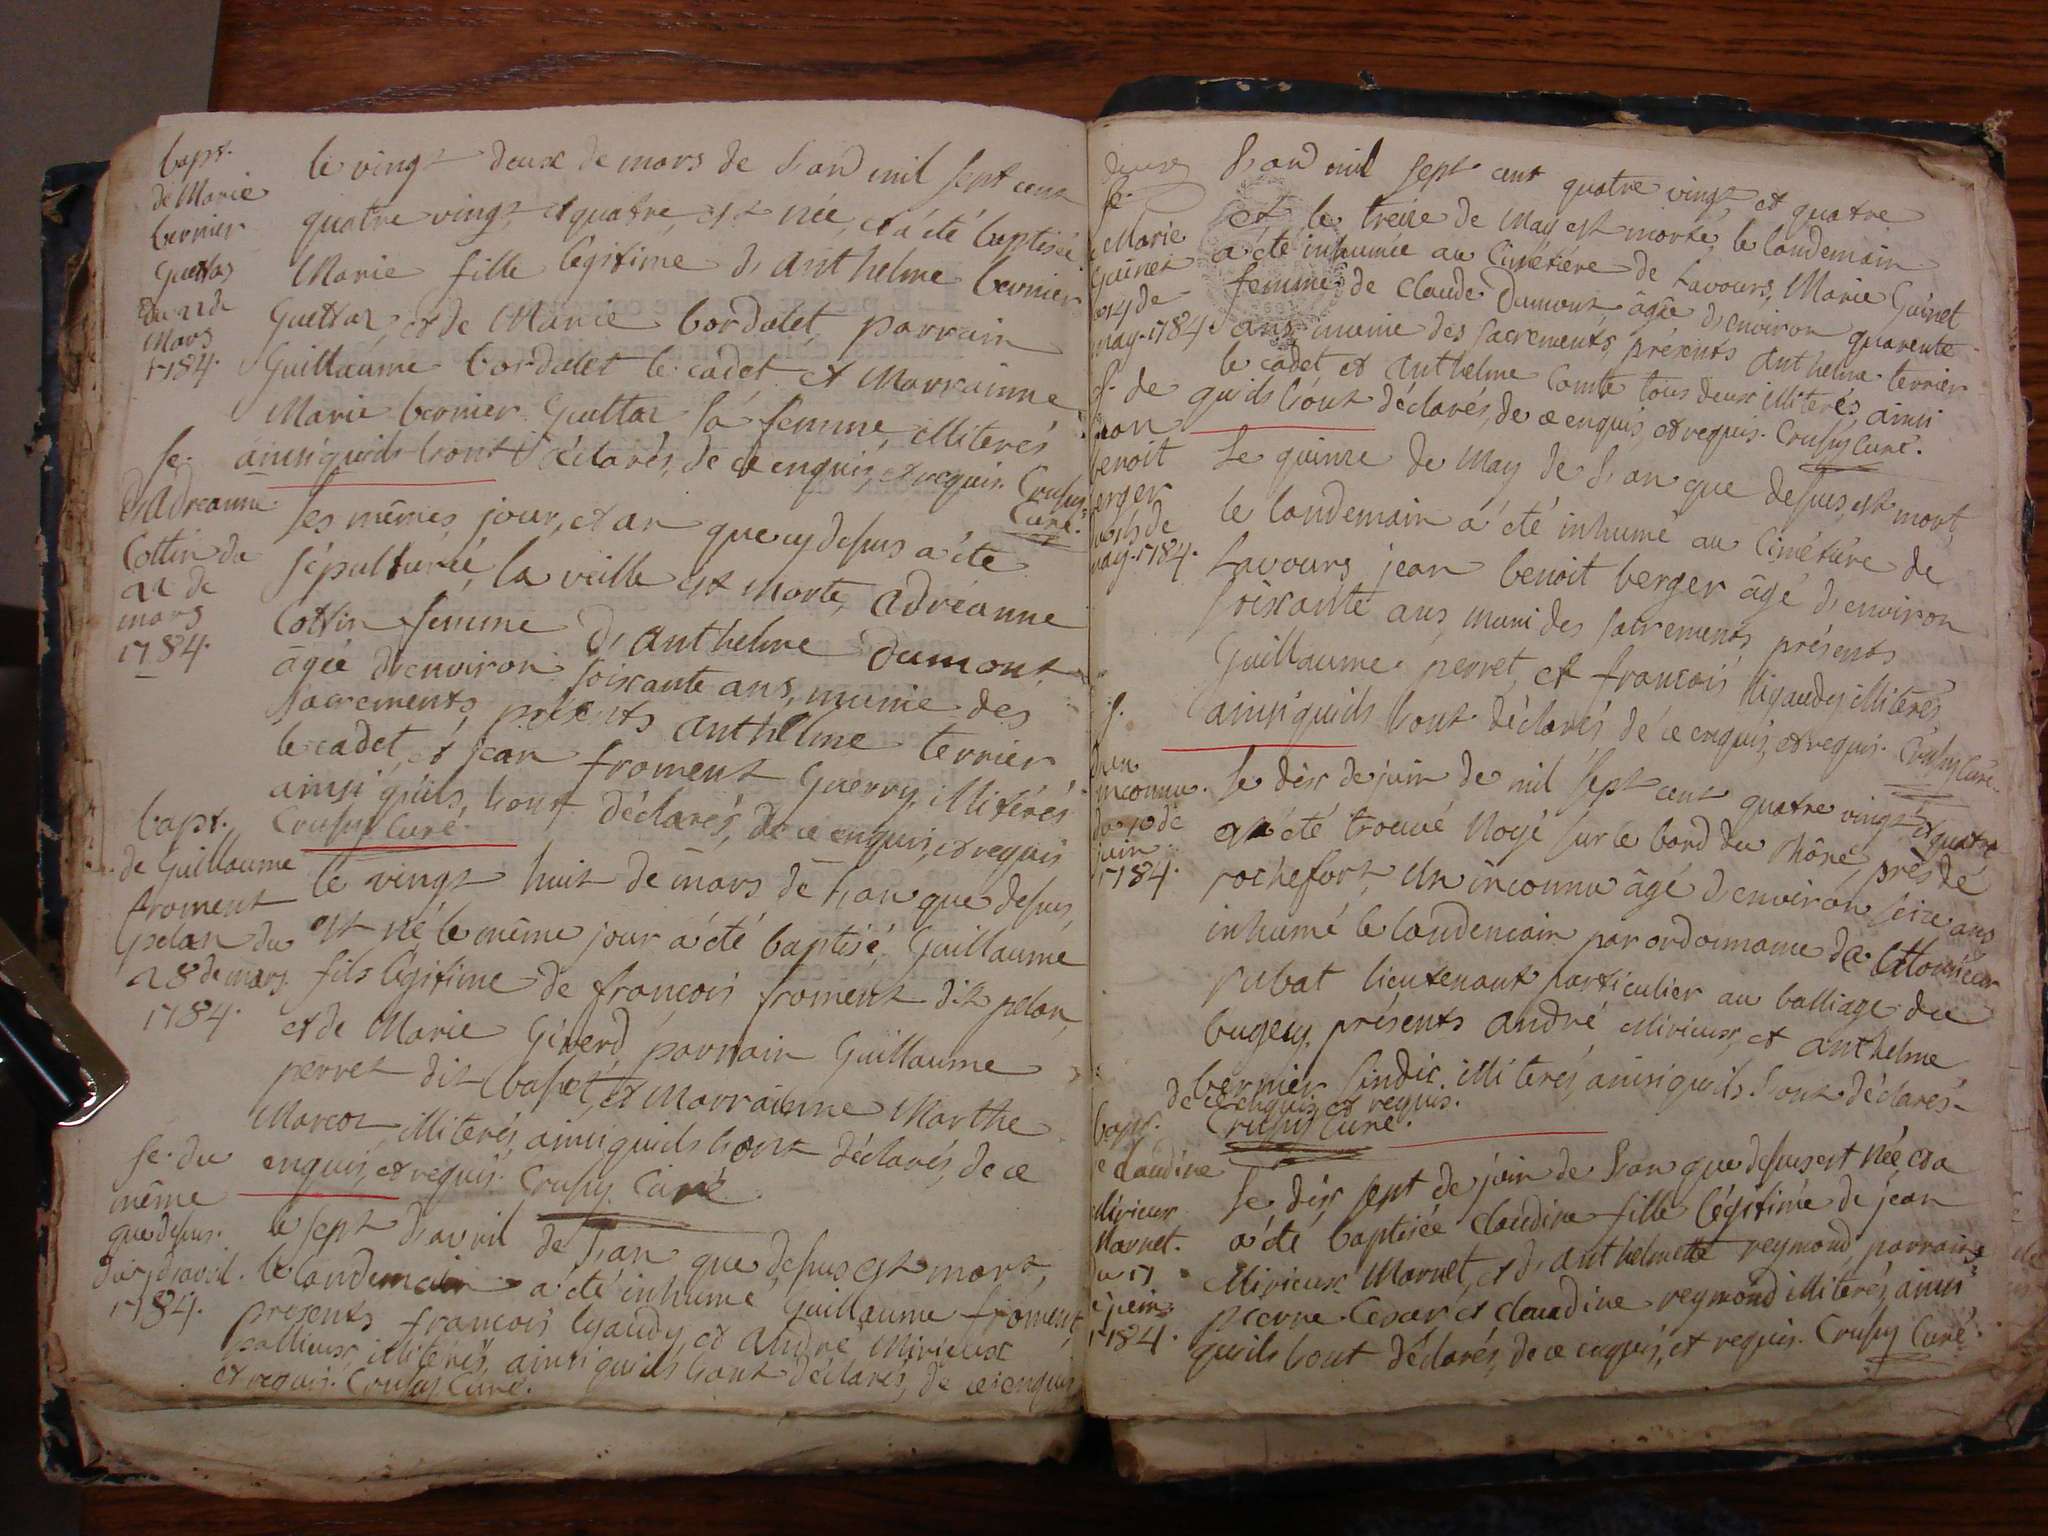 bapt.
de Marie
bernier
Guettaz
du 22 de
Mars
1784.
le vingt deux de mars de l'an mil sept cent
quatre vingt, et quatre, est née, et a été baptisée
Marie fille légitime d'anthelme bernier
Guettaz, et de Marie bordalet, parrain
Guillaume bordalet le cadet et Marrainne
Marie bernier Guettaz sa femme, illiterés
ainsi quils l'ont déclarés, de ce enquis, et requis. Crussy
Curé.
se.
d'adreanne
Cottin du
22 de
mars
1784.
Les mêmes jour, et an que cy dessus a été
sépulturée, la veille est morte, adréanne
Cottin femme d'anthelme Dumont,
âgée d'environ soixante ans, munie des
sacrements, présents anthelme terrier
le cadet, et jean froment Guerry, illitérés
ainsi qu'ils l'ont déclarés, de ce enquis, et requis
Crussy Curé.
bapt.
de Guillaume
froment
pelan du
28 de mars
1784.
le vingt huit de mars de l'an que dessus,
est né le même jour a été baptisé, Guillaume
fils légitime de françois froment dit pelan,
et de Marie Giverd, parrain Guillaume
perret dit basset, et Marrainne Marthe
Marcoz, illiterés, ainsi quils l'ont déclarés, de ce
enquis, et requis. Crussy Curé.
se. du
même
que dessus.
du 7 d'avril.
1784.
le sept d'avril de l'an que dessus est mort,
le landemain a été inhumé Guillaume froment,
présents françois ligaudy, et andré Mirieux
pallieux, illiterés, ainsi quils l'ont déclarés, de ce enquis
et requis. Crussy Curé.
se.
Marie
Guinet
14 de
may. 1784.
L'an mil sept cent quatre vingt, et quatre
et le treize de May est morte, le landemain
a été inhumée au Cimetière de Lavours, Marie Guinet
femme de Claude Dumont, âgée d'environ quarente
ans, munie des sacrements, présents anthelme terrier
le cadet et anthelme Comte tous deux illiterés, ainsi
quils l'ont déclarés, de ce enquis, et requis. Crussy Curé.
S. de
jean
benoit
berger
du 15 de
may. 1784.
Le quinze de May de l'an que dessus, est mort,
le landemain a été inhumé au Cimetière de
Lavours, jean benoit berger âgé d'environ
soixante ans, muni des sacrements, présents
Guillaume perret, et françois ligaudy, illiterés,
ainsi quils l'ont déclarés, de ce enquis, et requis. Crussy Curé.
S.
d'un
inconnu.
du 10 de
juin
1784.
Le dix de juin de mil sept cent quatre vingt, et quatre
a été trouvé Noyé sur le bord du Rhône, près de
rochefort, un inconnu âgé d'environ seize ans
inhumé le landemain par ordonnance de
rubat lieutenant particulier au balliage du
bugey, présents andré Mirieux, et anthelme
bernier sindic, illiterés, ainsi quils l'ont déclarés
de ce enquis, et requis.
Crussy Curé.
bapt.
de Claudine
Mirieux
Marnet.
du 17
de juin
1784.
Le dix sept de juin de l'an que dessus est née, et a
a été baptisée Claudine fille légitime de jean
Mirieux Marnet, et d'anthelmette reymond, parrain
pierre Cesar et claudine reymond illiterés, ainsi
quils l'ont déclarés, de ce enquis, et requis. Crussy Curé.